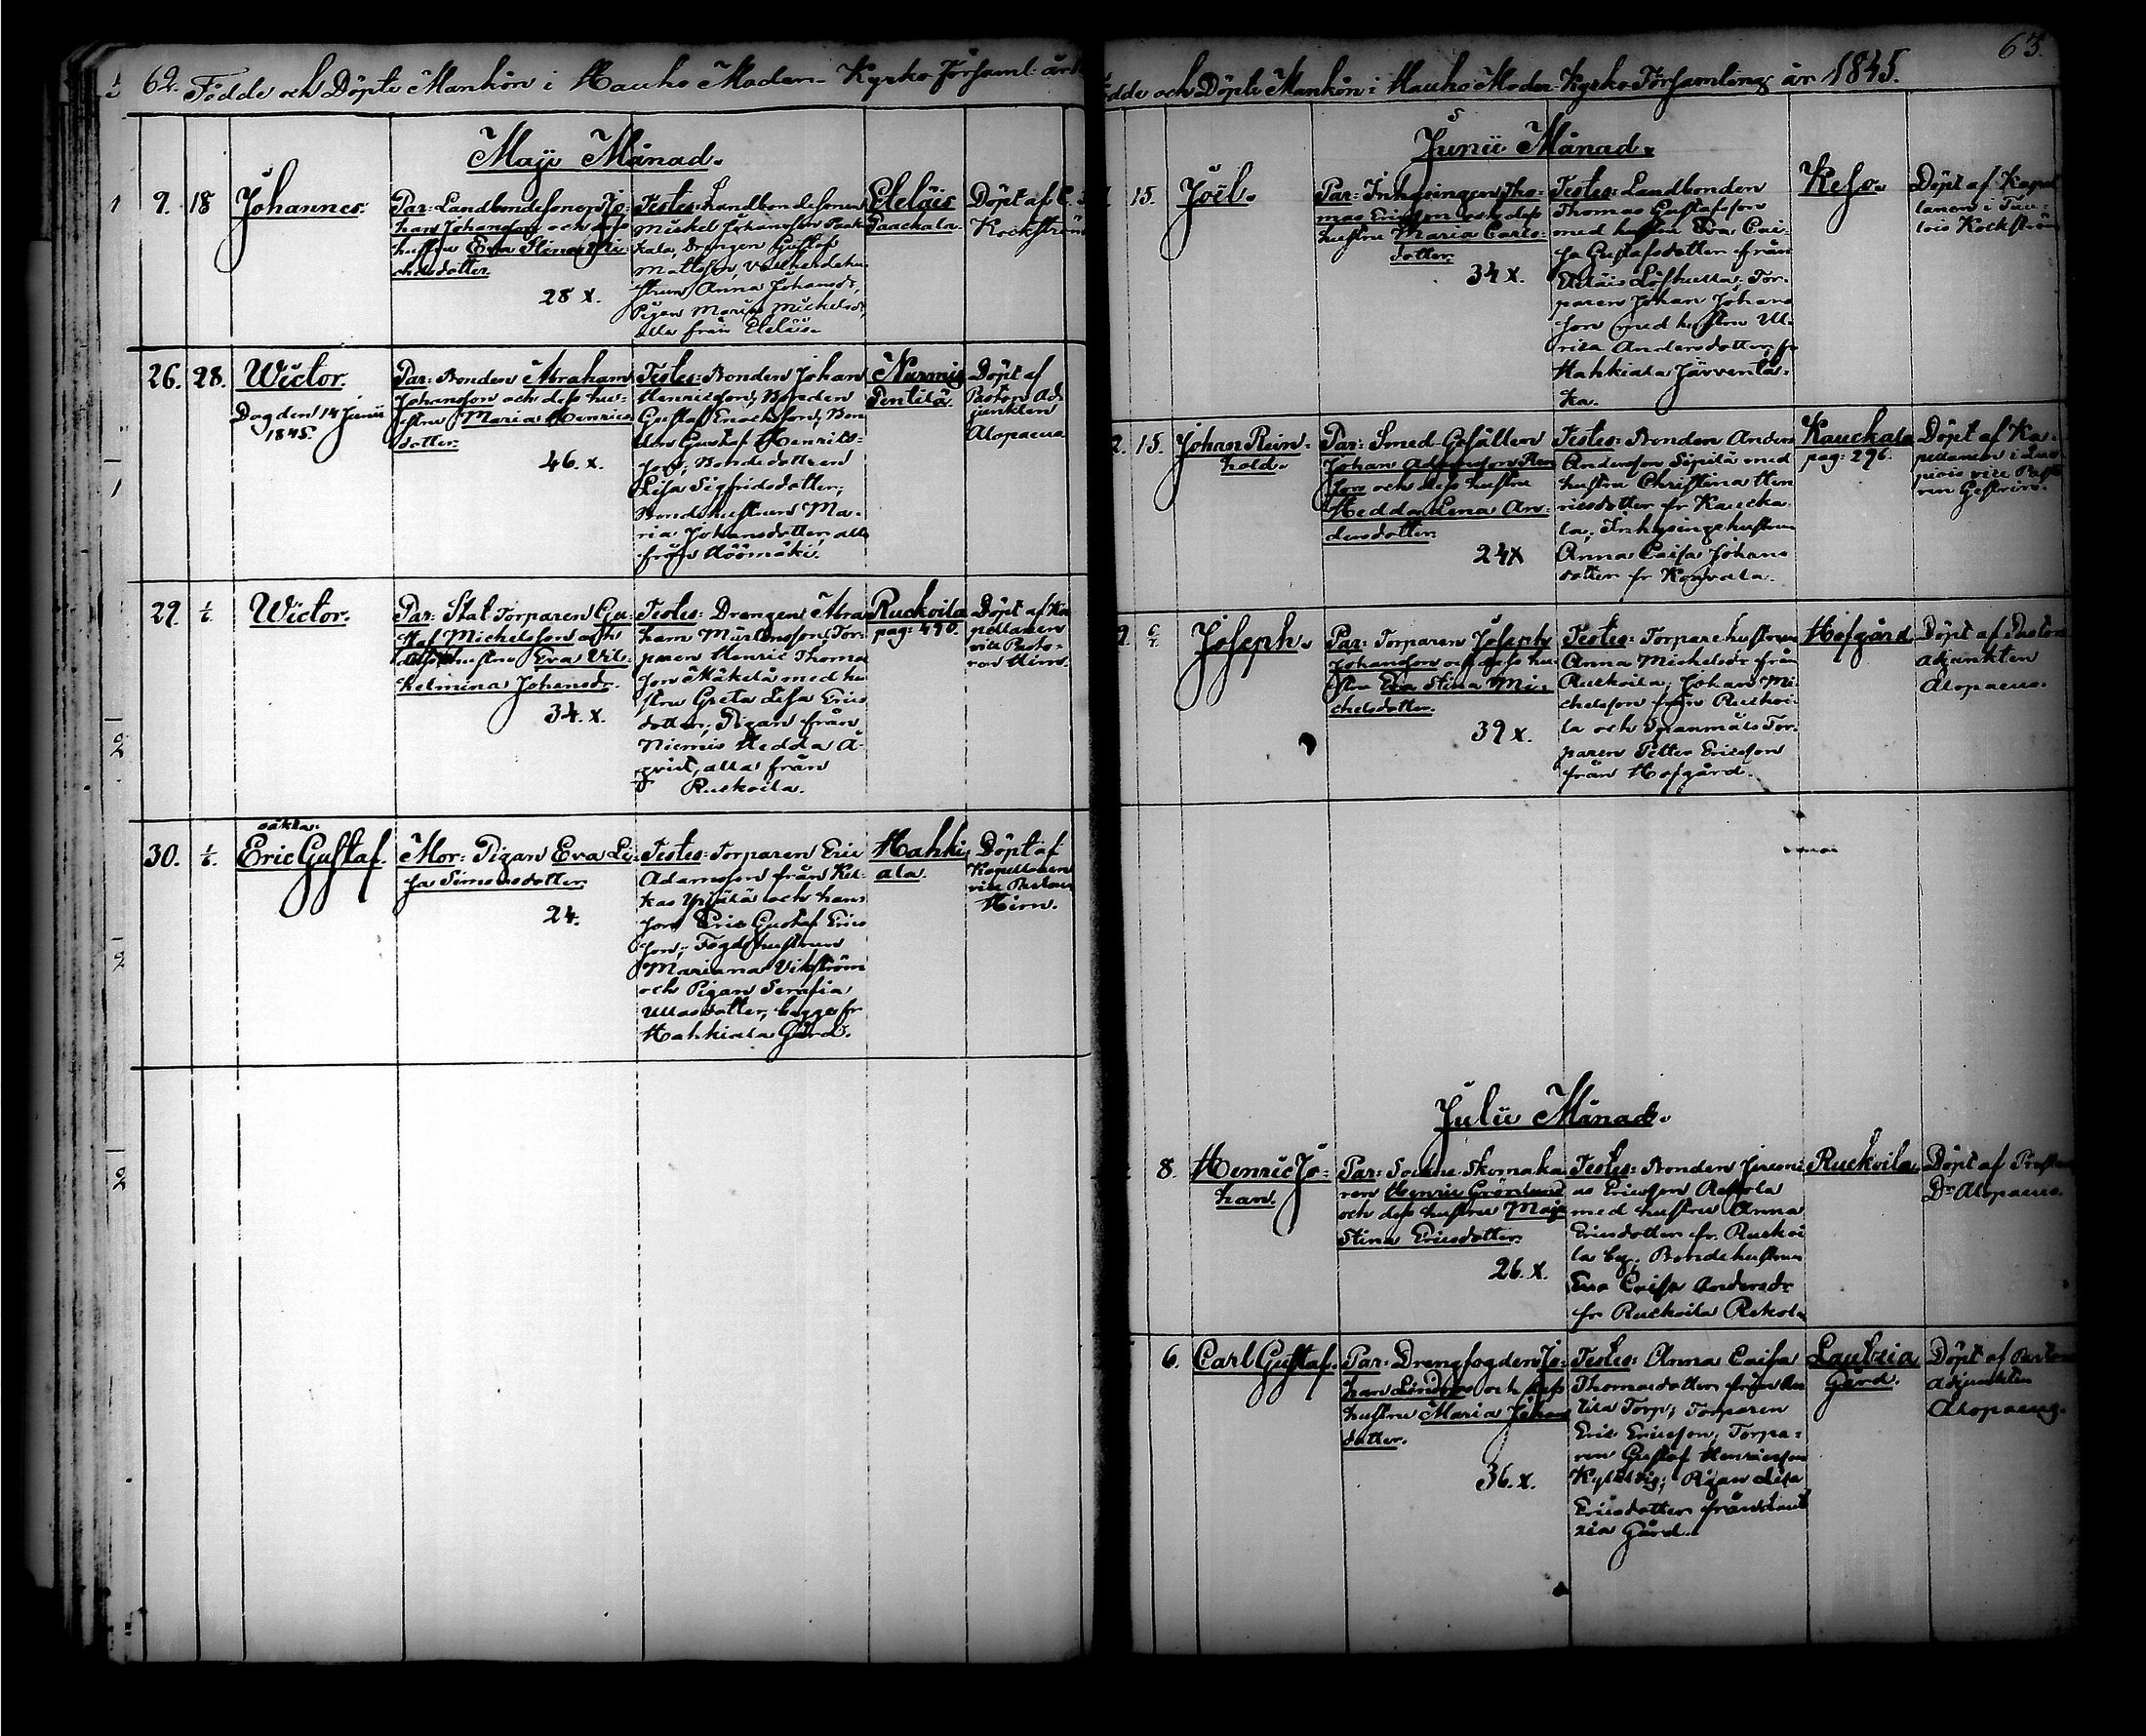 62. Födde och Döpte Mankön i Hauho Moder-Kyrko Församl: år
Maji Månad.
9. 18 Johannes.
Par: Landbondesonen Jo-
han Johansson och dess
hustru Eva Stina Mi-
chelsdotter.
28 x.
Testes: Landbondesonen
Mickel Johansson Paak-
kala, Drengen Gustaf
Mattsson,
Anna Johansdr,
Pigan Maria Michelsdr,
alla från Eteläis.
Eteläis
Paackala.
Döpt af C.
Kockström
26. 28. Wictor.
Dog den 14 Junii
1845.
Par: Bonden Abraham
Johansson och dess hu-
stru Maria Henrics-
dotter.
46. x.
Testes: Bonden Johan
Henricsson, Bonden
Gustaf Enochsson, Bon-
den Gustaf Henrics-
son, Bondedottren
Lisa Sigfridsdotter,
Bondehustrun Ma-
ria Johansdotter, alla
från
Nurmis
Pentilä.
Döpt af
Pastors Ad-
junkten
Alopaeus
29. 1/6. Wictor.
Par: Stat Torparen Gu-
staf Michelsson och
dess hustru Eva Vil-
helmina Johansdr.
34. x.
Testes: Drengen Abra-
ham Mårtensson, Tor-
paren Henric Thomas-
son Mäkelä med hu-
stru Greta Lisa Erics-
dotter, Pigan från
Niemis Hedda A-
qvist, alla från
Ruckoila.
Ruckoila
pag: 490.
Döpt af Ka-
pellanen
vice Pasto-
ren Hirn.
30. 1/6.
oäkta.
Eric Gustaf.
Mor: Pigan Eva Li-
sa Simonsdotter.
24.
Testes: Torparen Eric
Adamsson från
och hans
son Eric Gustaf Erics-
son, Fogdehustrun
Mariana Vikström
och Pigan Serafia
Ullasdotter, begge fr
Hahkiala Gård.
Hahki-
ala.
Döpt af
Kapellanen
vice Pastoren
Hirn.
63.
Födde och Döpte Mankön i Hauho Moder-Kyrko-Församling år 1845.
Junii Månad.
15. Joël.
Par: Inhysingen Tho-
mas Ericsson och dess
hustru Maria Carls-
dotter.
34 x.
Testes: Landbonden
Thomas Gustafsson
med hustru Eva Cai-
sa Gustafsdotter från
Eteläis Tor-
paren Johan Johans-
son med hustru Ul-
rica Andersdotter, fr
Hahkiala Järventa-
ka.
Keso.
Döpt af Kapel-
lanen i Tuu-
lois Kockström
2. 15. Johan Rein-
hold.
Par: Smed-Gesällen
Johan
och dess hustru
Hedda Lena An-
dersdotter.
24 x
Testes: Bonden Anders
Andersson Sipilä med
hustru Christina Hen-
ricsdotter fr Kaucka-
la, Inhysingehustrun
Anna Caisa Johans-
dotter fr
Kauckala
pag: 296.
Döpt af Ka-
pellanen i Luo-
piois vice Pasto-
ren Gestrin.
6/7. Joseph.
Par: Torparen Joseph
Johansson och dess hu-
stru Eva Stina Mi-
chelsdotter.
39 x.
Testes: Torparehustrun
Anna Michelsdr från
Ruckoila, Johan Mi-
chelsson från Ruckoi-
la och Spanmåls Tor-
paren Petter Ericsson
från Hofgård.
Hofgård
Döpt af Pastors
adjunkten
Alopaeus.
Julii Månad.
8. Henric Jo-
han.
Par: Sockne Skomaka-
ren Henric Grönlund
och dess hustru Maja
Stina Ericsdotter.
26. x.
Testes: Bonden Jeremi-
as Ericsson Rekola
med hustru Anna
Ericsdotter fr. Ruckoi-
la by, Bondehustrun
Eva Caisa Andersdr
fr Ruckoila Rekola
Ruckoila.
Döpt af Pastors
Dr Alopaeus.
6. Carl Gustaf.
Par: Drengfogden Jo-
han och dess
hustru Maria Johans-
dotter.
36. x.
Testes: Anna Caisa
Thomasdotter från
Torp, Torparen
Eric Ericsson, Torpa-
ren Gustaf Henricsson
Pigan Lisa
Ericsdotter från Laut-
zia Gård.
Lautzia
Gård.
Döpt af Pastors
adjunkten
Alopaeus.